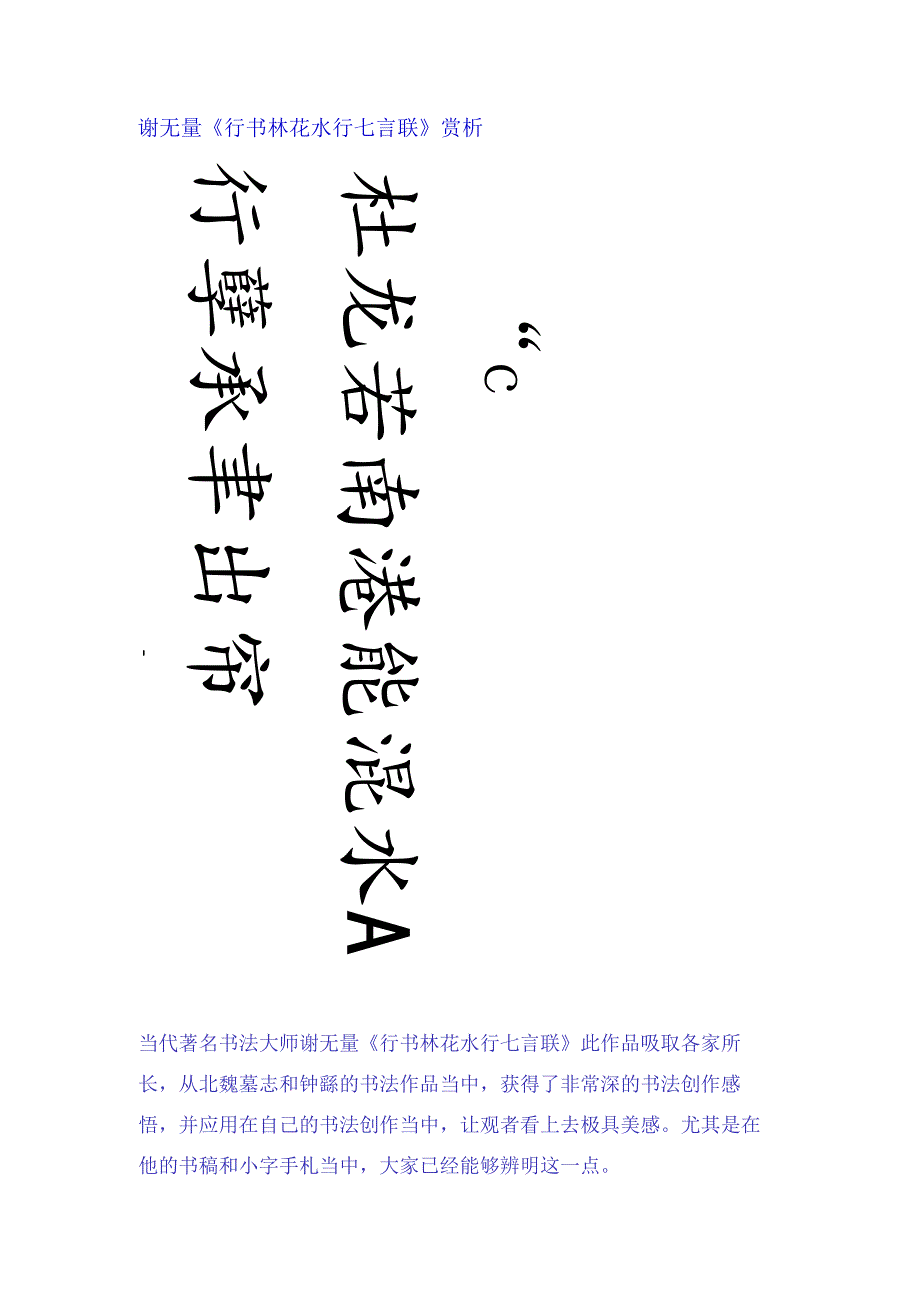 谢无量《行书林花水行七言联》赏析
杜龙若南港能混水A
行孽承聿出帘
“c
当代著名书法大师谢无量《行书林花水行七言联》此作品吸取各家所
长，从北魏墓志和钟繇的书法作品当中，获得了非常深的书法创作感
悟，并应用在自己的书法创作当中，让观者看上去极具美感。尤其是在
他的书稿和小字手札当中，大家已经能够辨明这一点。